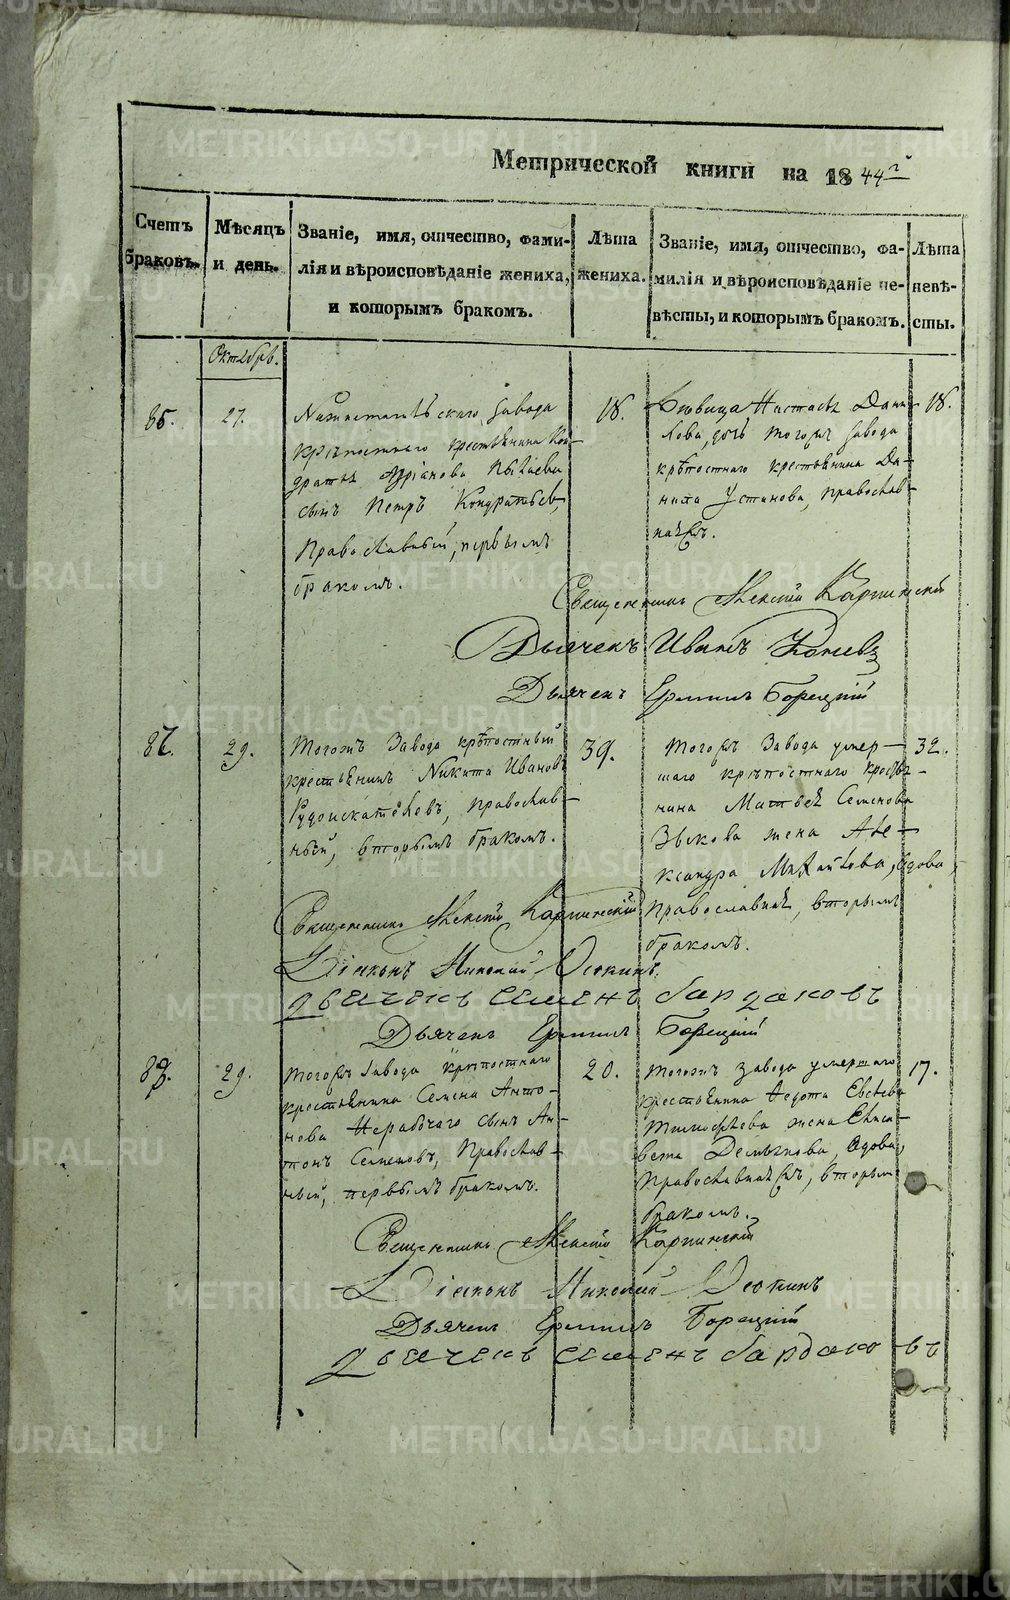 Метрической книги на 1844 г
Счетъ браковъ.
Мѣсяцъ и день.
Званіе, имя, отчество, фами-
лія и вѣроисповѣданіе жениха,
и которымъ бракомъ.
Лѣта
жениха.
Званіе, имя, отчество, фа-
милія и вѣроисповѣданіе не-
вѣсты, и которымъ бракомъ.
Лѣта
невѣ-
сты.
Октябрь.
27.
завода
крѣпостнаго крестьянина Кон-
сынъ Петръ Кондратьевъ,
Православный, первымъ
бракомъ.
18.
Дѣвица Настасья Дани-
лова, дочь тогожъ завода
крѣпостнаго крестьянина Да-
нила Устинова, православ-
18.
Священникъ Алексій Карпинскій
Дьячекъ Иванъ
Дьячекъ Ермилъ Борецкій
29.
Тогожъ Завода крѣпостный
крестьянинъ Никита Ивановъ
Рудоискателевъ, православ-
ный, вторымъ бракомъ.
39.
Тогожъ Завода умер-
шаго крѣпостнаго крестья-
нина Матвея Семенова
Зыкова жена Але-
ксандра Михайлова, вдова,
Православная, вторымъ
бракомъ.
32.
Священникъ Алексій Карпинскій
Діаконъ Николай
дьячекъ семенъ бардаковъ
Дьячекъ Ермилъ Борецкій
29.
Тогожъ Завода крѣпостнаго
крестьянина Семена Анто-
нова сынъ Ан-
тонъ Семеновъ, Православ-
ный, первымъ бракомъ.
20.
Тогожъ завода умершаго
крестьянина Федота
Тимофеева жена Елиса-
вета вдова,
вторымъ
бракомъ.
17.
Священникъ Алексій Карпинскій
Діаконъ Николай
Дьячекъ Ермилъ Борецкій
дьячекъ семенъ бардаковъ
METRIKI.GASO-URAL.RU